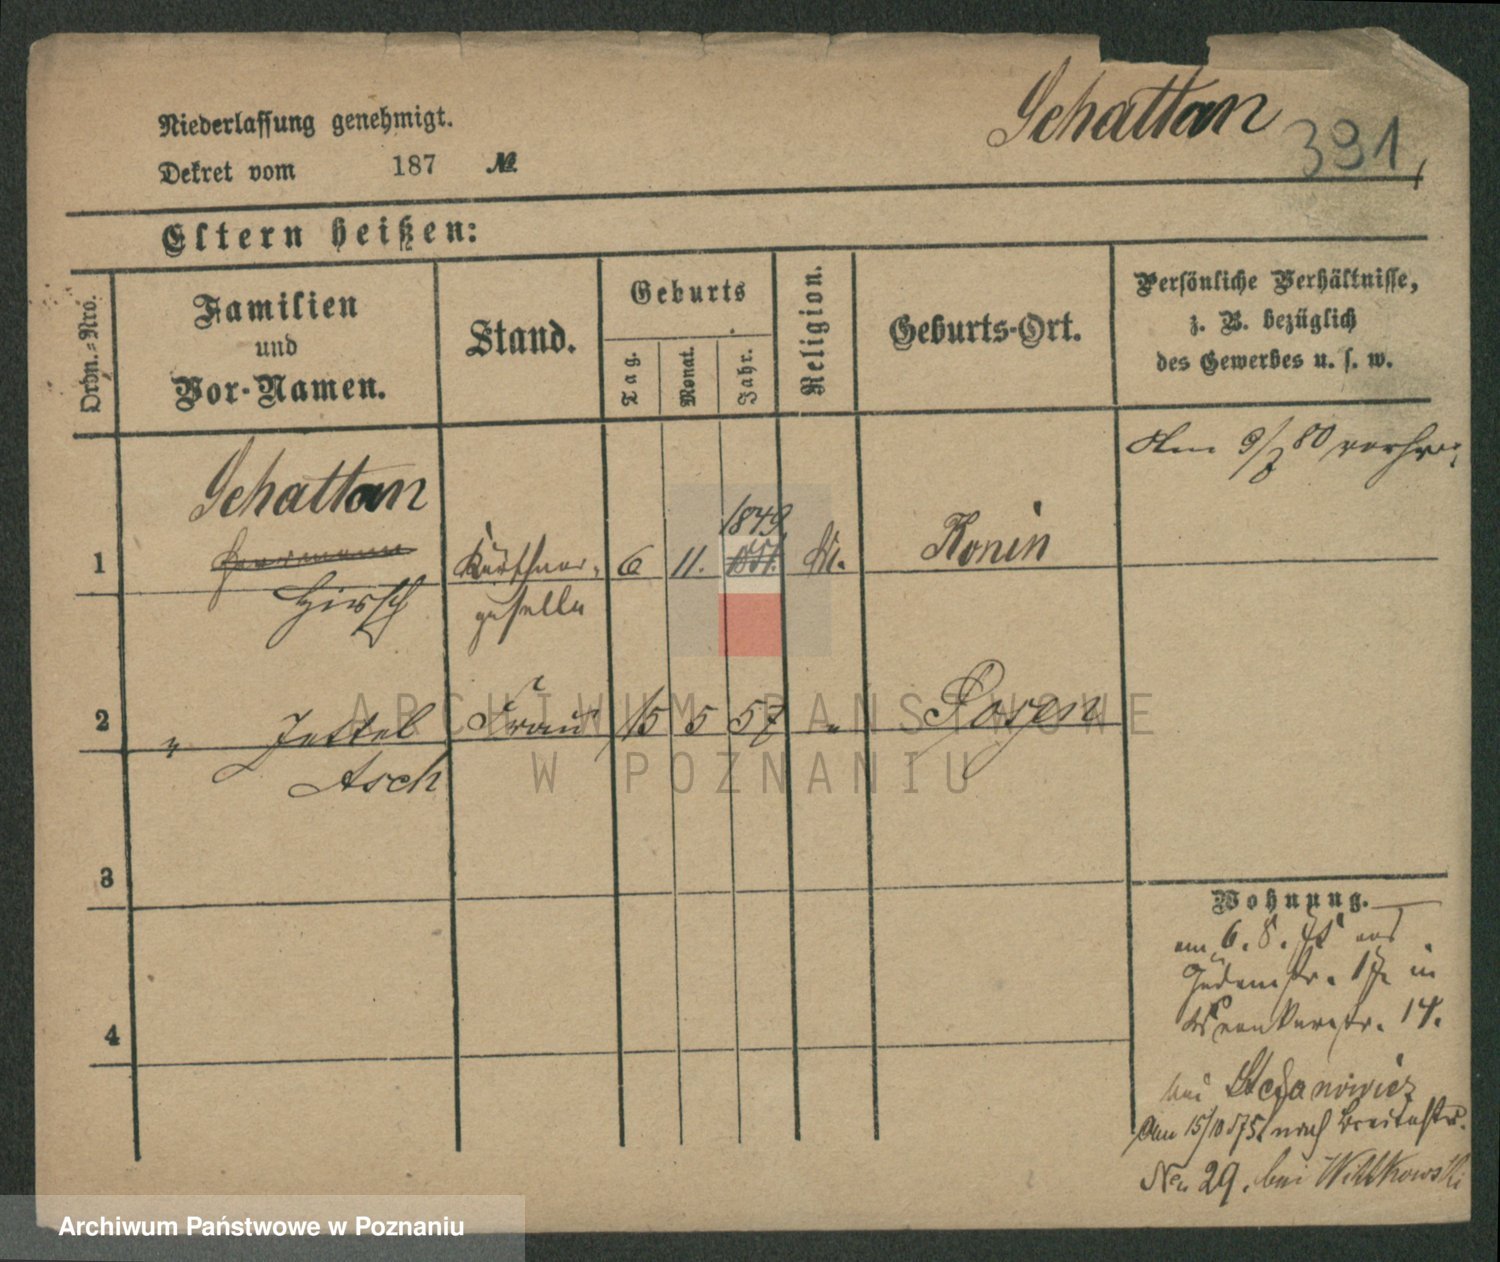 Schattan
391,
Niederlassung genehmigt.
Dekret vom 187 №
Eltern heißen:
Ordn.-Nro.
Familien
und
Vor-Namen.
Stand.
Geburts
Tag.
Monat.
Jahr.
Religion.
Geburts-Ort.
Persönliche Verhältnisse,
z. B. bezüglich
des Gewerbes u. s. w.
Am 9/7 80
Schattan
1849
1 Hermann Kürschner- 6 11. 1851. M. Konin
Hirsch geselle
2 " Jettel Frau 15 5 57 " Posen
Asch
3
4
Wohnung.
am 6. 8. 75 aus
Judenstr. 17 in
Wronkerstr. 14.
bei Stefanowicz
Am 15/10 875 nach Breitestr.
No. 29. bei Wittkowski
ARCHIWUM PAŃSTWOWE
W POZNANIU
Archiwum Państwowe w Poznaniu